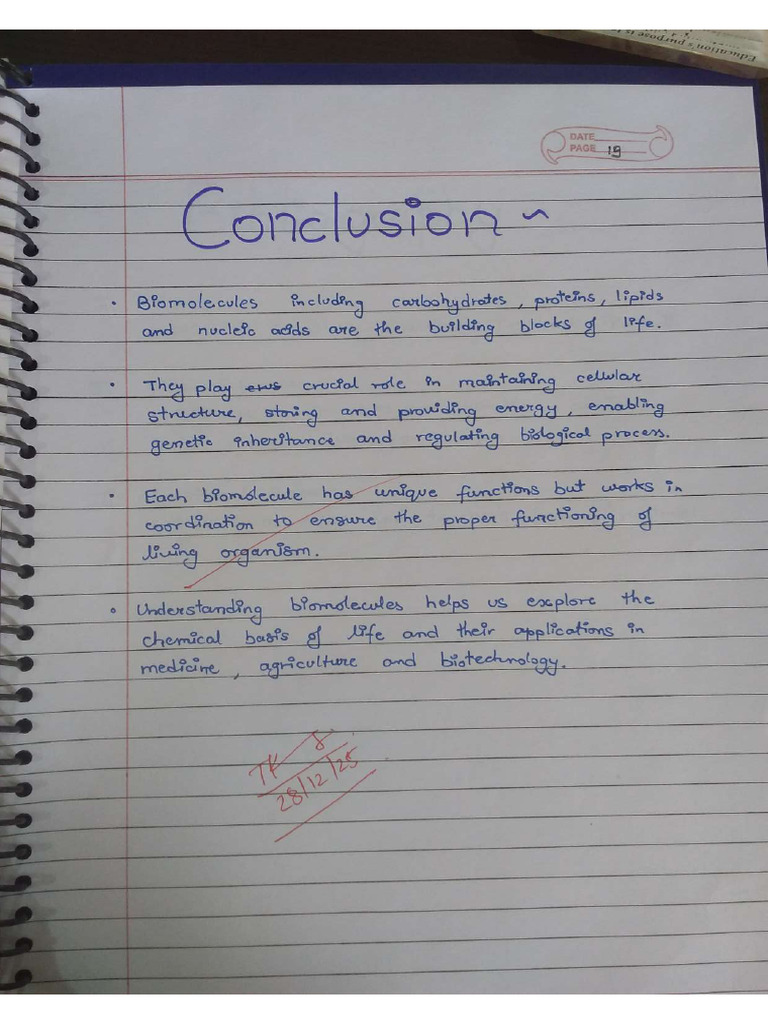 Education's purpose is
DATE
PAGE 19
Conclusion ~
• Biomolecules including carbohydrates, proteins, lipids
and nucleic acids are the building blocks of life.
• They play crucial role in maintaining cellular
structure, storing and providing energy, enabling
genetic inheritance and regulating biological process.
• Each biomolecule has unique functions but works in
coordination to ensure the proper functioning of
living organism.
• Understanding biomolecules helps us explore the
chemical basis of life and their applications in
medicine, agriculture and biotechnology.
28/12/25